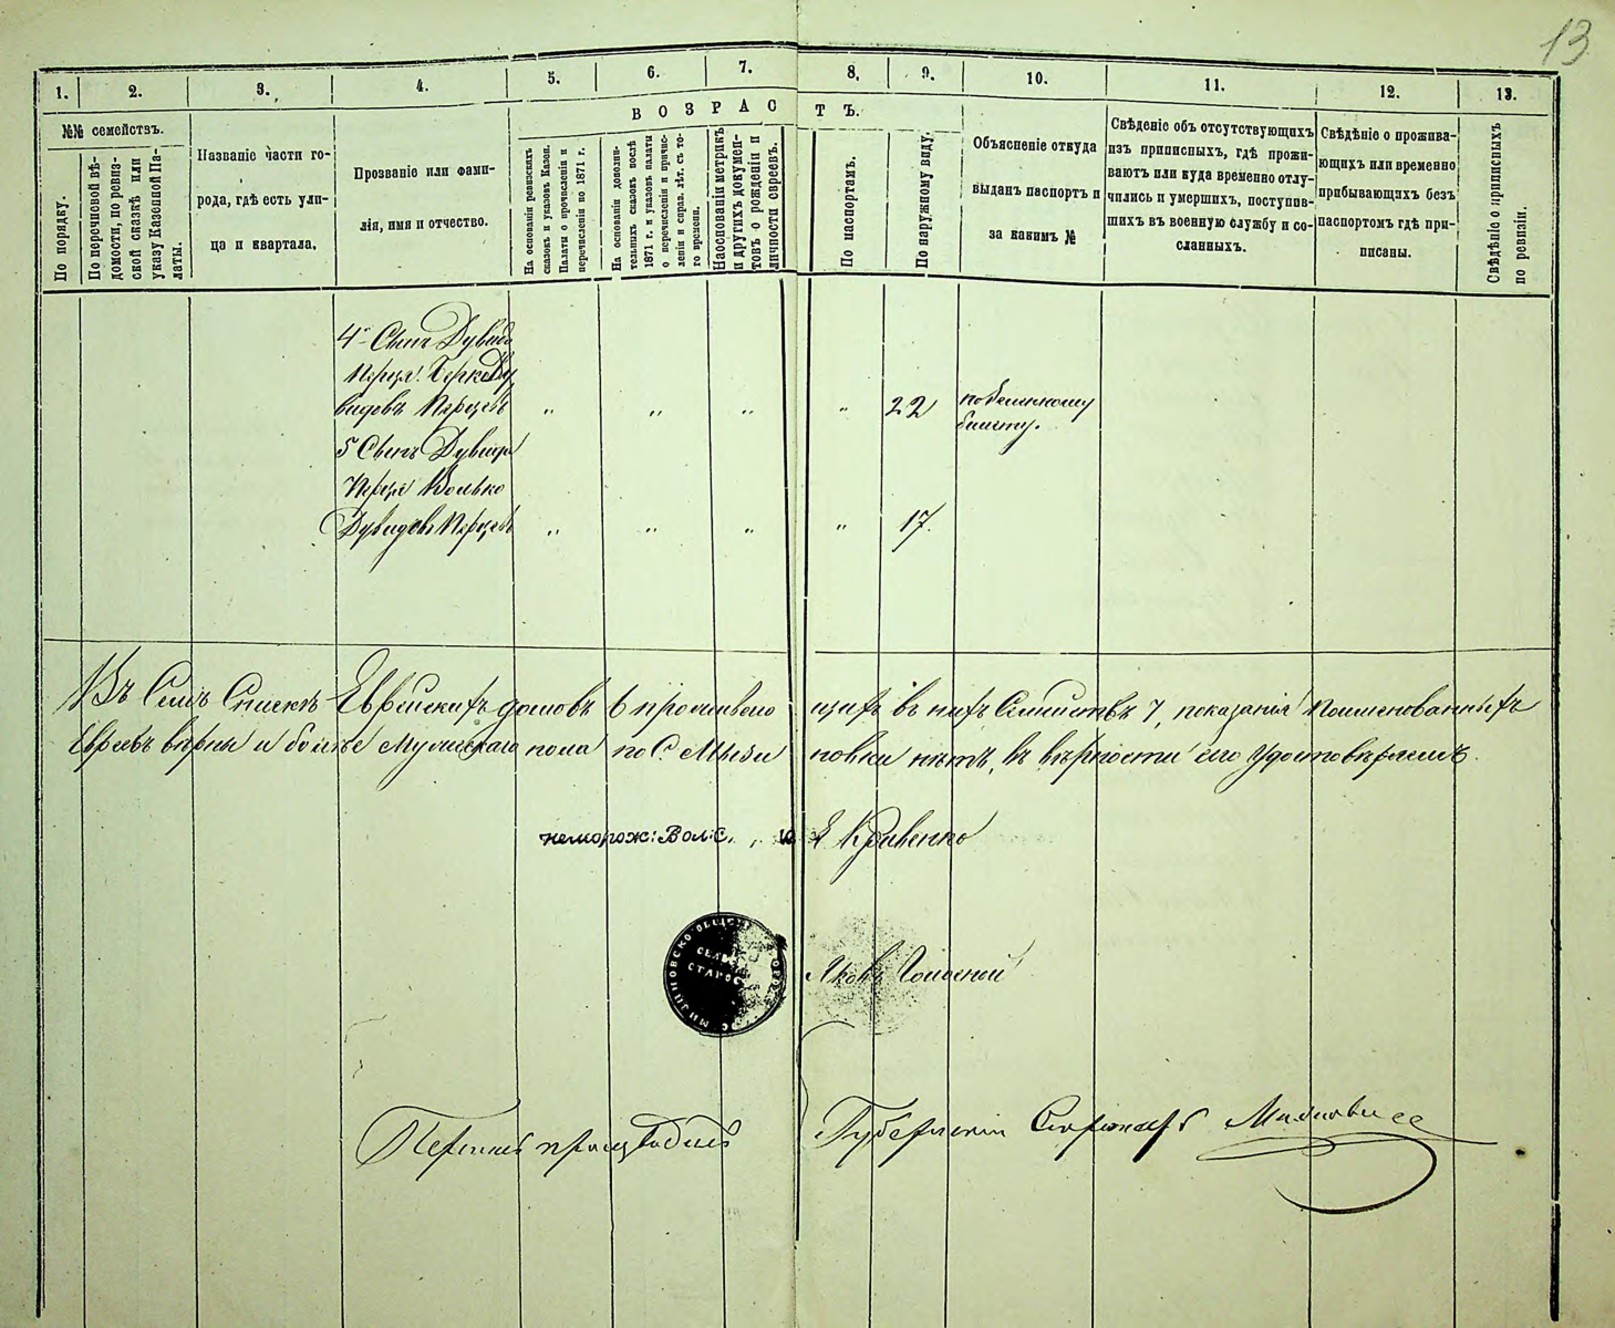 13
1. 2. 3. 4. 5. 6. 7. 8. 9. 10. 11. 12. 13.
ВОЗРАСТЪ.
№№ семействъ.
По порядку.
По перечисовой вѣ-
домости, по ревиз-
ской сказкѣ или
указу Казенной Па-
латы.
Названіе части го-
рода, гдѣ есть ули-
ца и квартала.
Прозваніе или фами-
лія, имя и отчество.
На основаніи ревизскихъ
сказокъ и указовъ Казен.
Палаты о прочисленіи и
перечисленіи по 1871 г.
На основаніи дополни-
тельныхъ сказокъ послѣ
1871 г. и указовъ палаты
о перечисленіи и причис-
леніи и справ. лѣт. съ то-
го времени.
На основаніи метрикъ
и другихъ докумен-
товъ о рожденіи и
личности евреевъ.
По паспортамъ.
По наружному виду.
Объясненіе откуда
выданъ паспортъ и
за какимъ №
Свѣденіе объ отсутствующихъ
изъ приписныхъ, гдѣ прожи-
ваютъ или куда временно отлу-
чились и умершихъ, поступив-
шихъ въ военную службу и со-
сланныхъ.
Свѣдѣніе о прожива-
ющихъ или временно
прибывающихъ безъ
паспортомъ гдѣ при-
писаны.
Свѣдѣніе о приписныхъ
по ревизіи.
4. Сынъ Дувида
Перця Берко Ду
видовъ Перцевъ " " " " 22 по
билету.
5 Сынъ Дувида
Перця Волько
Дувидовъ Перцевъ " " " " 17.
Въ Семъ Спискѣ Еврейскихъ домовъ 6 проживаю щихъ въ нихъ Семействъ 7, показанія Поименованныхъ
Евреевъ вѣрны и болѣе Мужескаго пола по С. новки нѣтъ, въ вѣрности его Удостовѣряемъ.
неморож: Вол: С. Кравенко
СЕЛЬС
СТАРОС
Яковъ
Перепись производилъ Губернскій Секретарь